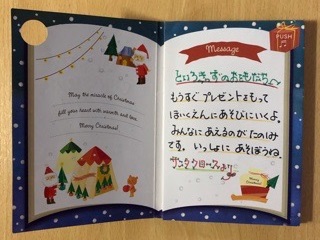 May the miracle of Christmas
fill your heart with warmth and love.
Merry Christmas!
PUSH
Message
といろきっずのおともだちへ
もうすぐプレゼントをもって
ほいくえんにあそびにいくよ。
みんなにあえるのがたのしみ
です。いっしょにあそぼうね。
サンタクロースより